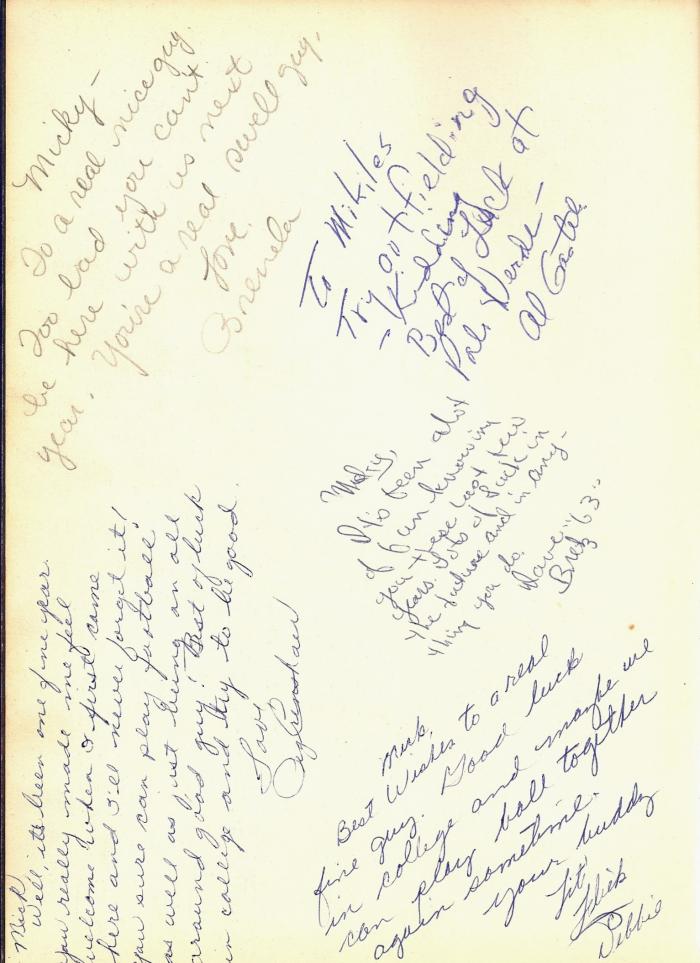 Micky —
To a real nice guy.
Too bad you can't
be here with us next
year. You're a real swell guy.
Love
Brenda
To Mikiles
Try outfielding
- Kidding
Best of Luck at
Palo Verde -
Al
Micky,
It's been alot
of fun knowing
you these last few
years. Lots of luck in
the future and in any-
thing you do.
Dave
Bretz "63"
Mick
Well, it's been one fine year.
You really made me feel
welcome when I first came
here and I'll never forget it!
You sure can play football!
as well as just being an all
around good guy! Best of luck
in college and try to be good.
Love
Crenshaw
Mick,
Best Wishes to a real
fine guy. Good luck
in college and maybe we
can play ball together
again sometime.
your buddy
Lit'
Flick
Tibbie